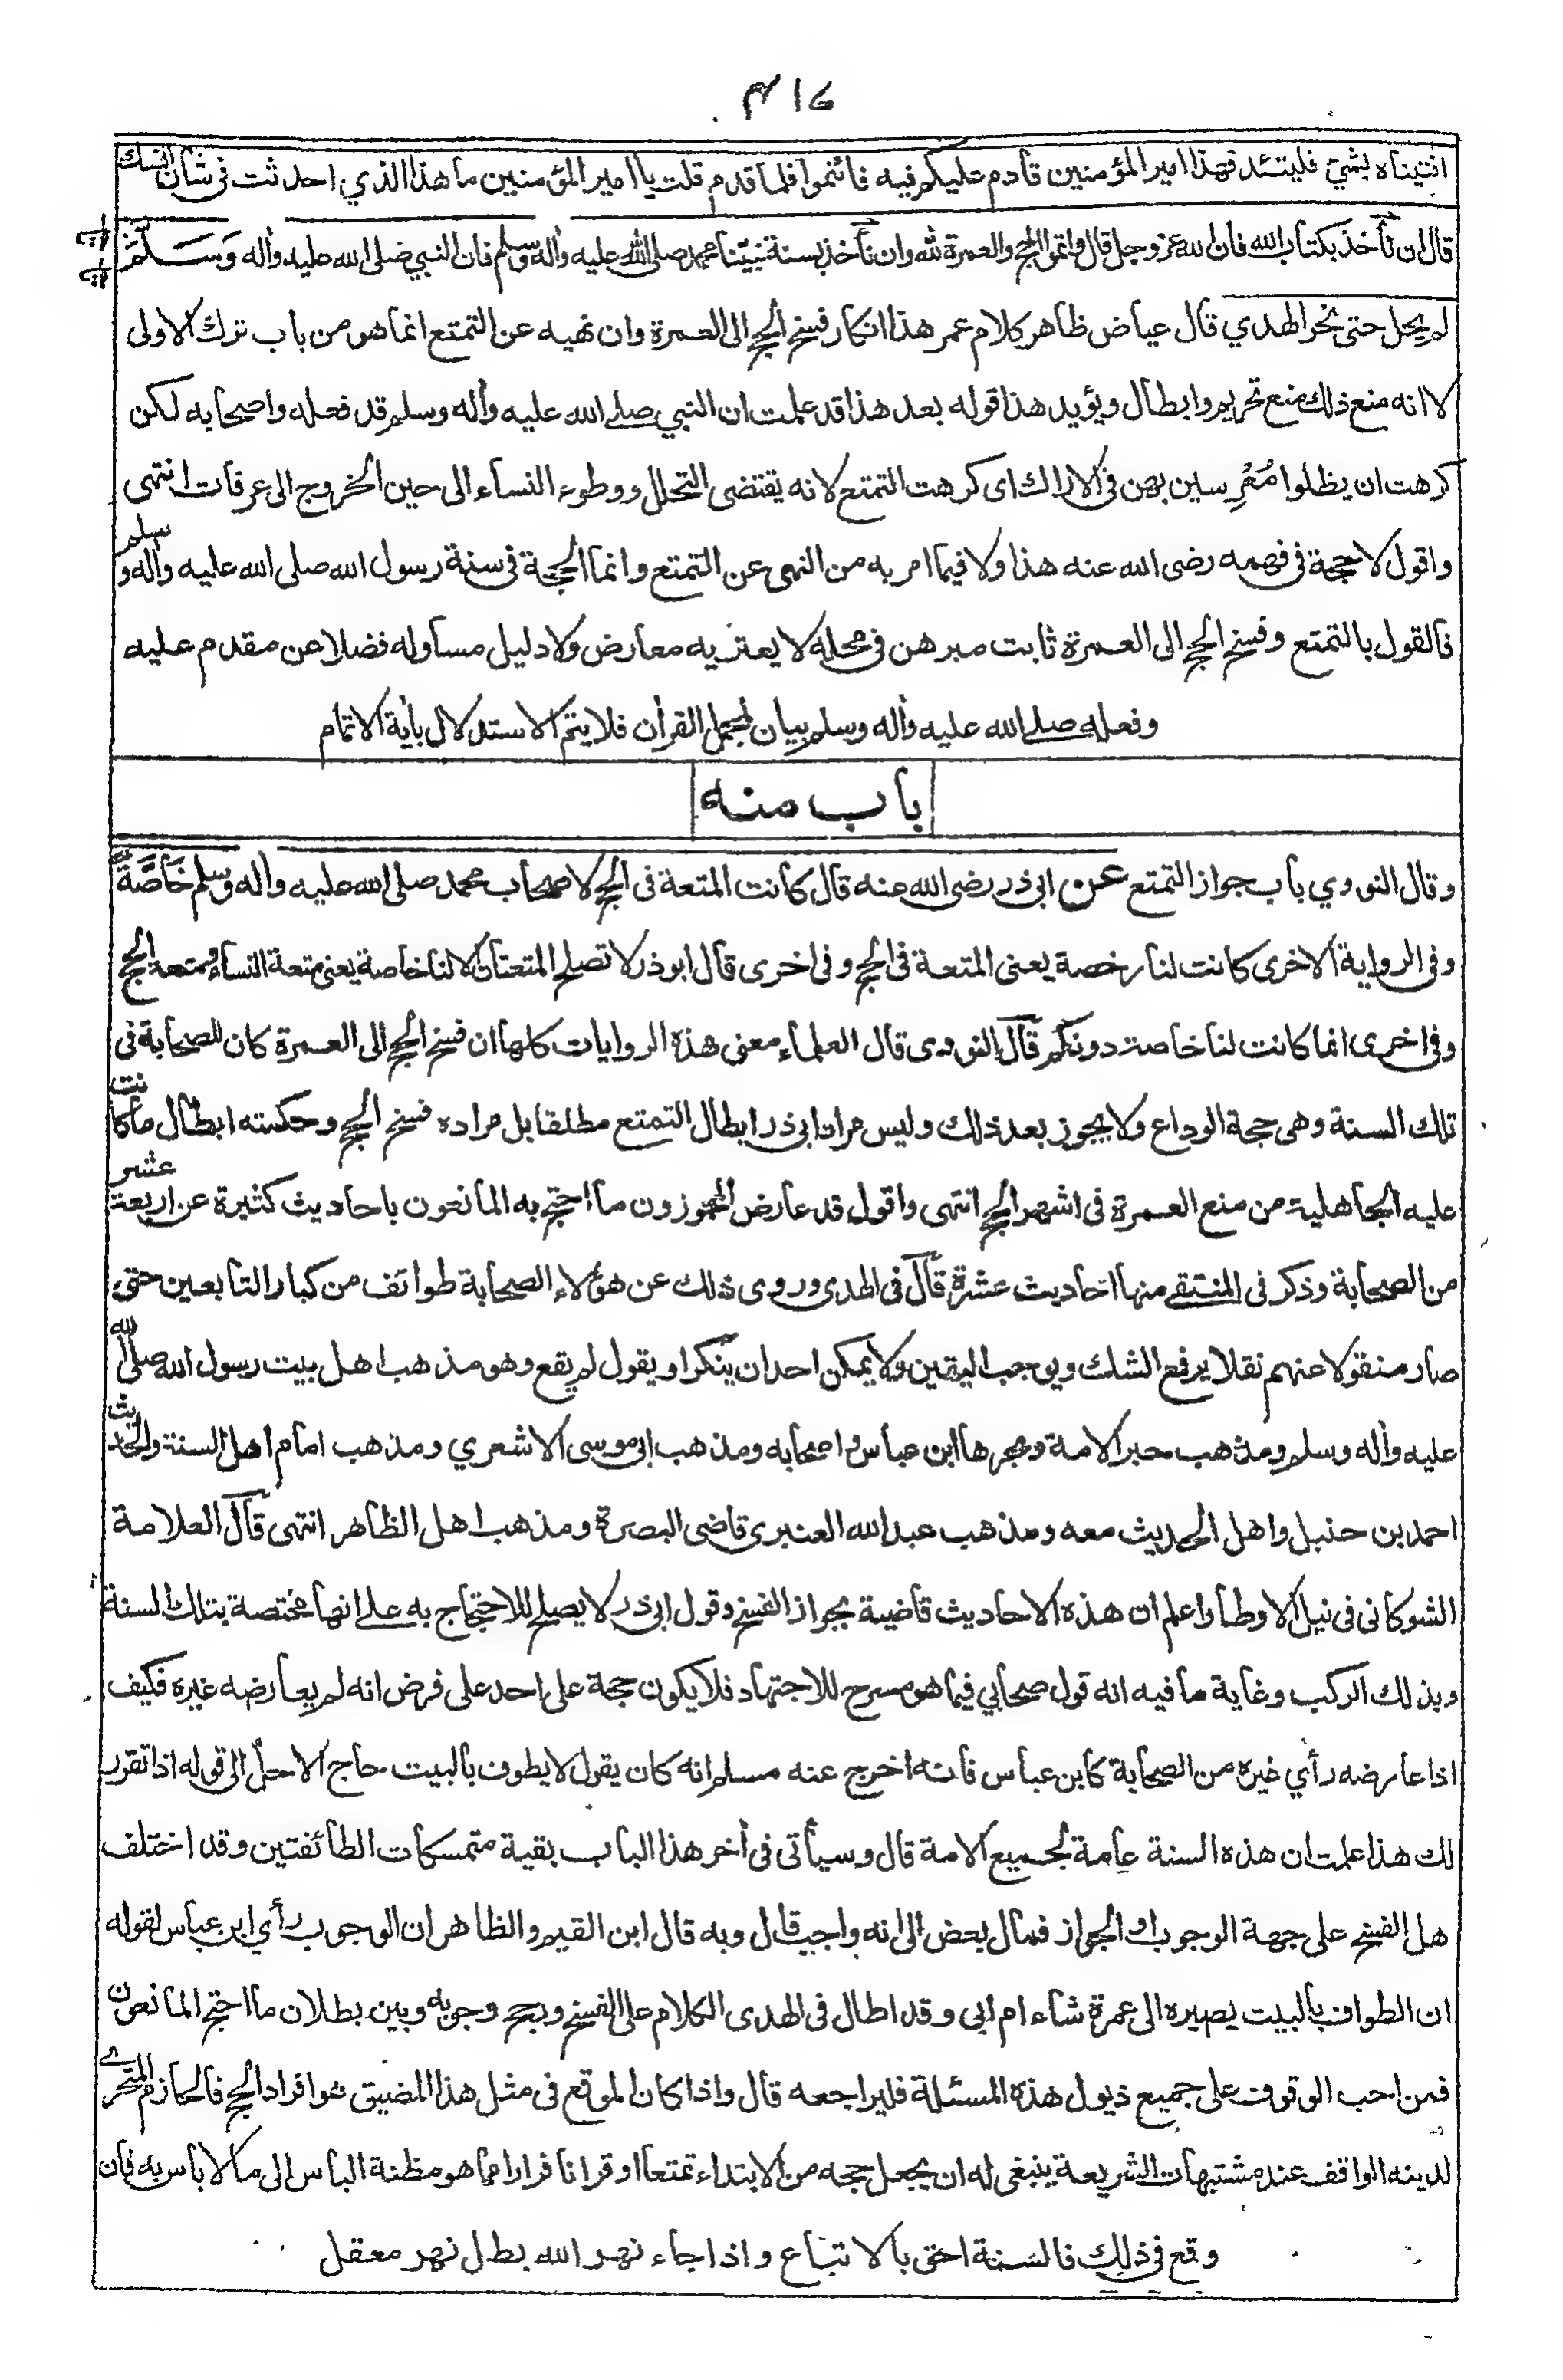 ٤١٦
افتيناه بشئ فليتئد فهذا امير المؤمنين قادم عليكم فيه فائتموا فلما قدم قلت يا امير المؤمنين ما هذا الذي احدثت فى شأن النسك
قال ان نأخذ بكتاب الله فان الله عز وجل قال واتموا الحج والعمرة لله وان نأخذ بسنة نبيّنا محمد صلى الله عليه واله وسلم فان النبي صلى الله عليه واله وَسَلَّمَ
لم يحل حتى نحر الهدي قال عياض ظاهر كلام عمر هذا انكار فسخ الحج الى العمرة وان نهيه عن التمتع انما هو من باب ترك الاولى
لا انه منع ذلك منع تحريم وابطال ويؤيد هذا قوله بعد هذا قد علمت ان النبي صلے الله عليه واله وسلم قد فعله واصحابه لكن
كرهت ان يظلوا مُعْرِسين بهن فى الاراك اى كرهت التمتع لانه يقتضى التحلل ووطوء النساء الى حين الخروج الى عرفات انتهى
واقول لا حجة فى فهمه رضى الله عنه هذا ولا فيما امر به من النهى عن التمتع وانما الحجة فى سنة رسول الله صلى الله عليه واله وسلم
فالقول بالتمتع وفسخ الحج الى العمرة ثابت مبرهن فى محله لا يعتريه معارض ولا دليل مساوله فضلا عن مقدم عليه
وفعله صلے الله عليه واله وسلم بيان لمجمل القرأن فلا يتم الاستدلال بأية الاتمام
باب منه
وقال النووي باب جواز التمتع عن ابى ذر رضى الله عنه قال كانت المتعة فى الحج لاصحاب محمد صلى الله عليه واله وسلم خَاصَّةً
وفى الرواية الاخرى كانت لنا رخصة يعنى المتعة فى الحج وفى اخرى قال ابو ذر لا تصلح المتعتان الا لنا خاصة يعنى متعة النساء ومتعة الحج
وفى اخرى انما كانت لنا خاصة دونكم قال النووى قال العلماء معنى هذه الروايات كلها ان فسخ الحج الى العمرة كان للصحابة فى
تلك السنة وهى حجة الوداع ولا يجوز بعد ذلك وليس مراد ابى ذر ابطال التمتع مطلقا بل مراده فسخ الحج وحكمته ابطال ما كانت
عليه الجاهلية من منع العمرة فى اشهر الحج انتهى واقول قد عارض المجوزون ما احتج به المانعون باحاديث كثيرة عن اربعة عشر
من الصحابة وذكر فى المنتقے منها احاديث عشرة قال فى الهدى وروى ذلك عن هؤلاء الصحابة طوائف من كبار التابعين حتى
صار منقولا عنهم نقلا يرفع الشك ويوجب اليقين ولا يمكن احد ان ينكر او يقول لم يقع وهو مذهب اهل بيت رسول الله صلى الله
عليه واله وسلم ومذهب حبر الامة وبحرها ابن عباس واصحابه ومذهب ابى موسى الاشعري ومذهب امام اهل السنة والحديث
احمد بن حنبل واهل الحديث معه ومذهب عبد الله العنبرى قاضى البصرة ومذهب اهل الظاهر انتهى قال العلامة
الشوكانى فى نيل الاوطار اعلم ان هذه الاحاديث قاضية بجواز الفسخ وقول ابى ذر لا يصلح للاحتجاج به علے انها مختصة بتلك السنة
وبذلك الركب وغاية ما فيه انه قول صحابي فيما هو مسرح للاجتهاد فلا يكون حجة على احد على فرض انه لم يعارضه غيره فكيف
اذا عارضه رأي غيره من الصحابة كابن عباس فانه اخرج عنه مسلم انه كان يقول لا يطوف بالبيت حاج الا حل الى قوله اذا تقرر
لك هذا علمت ان هذه السنة عامة لجميع الامة قال وسيأتى فى أخر هذا الباب بقية متمسكات الطائفتين وقد اختلف
هل الفسخ على جهة الوجوب او الجواز فمال بعض الى انه واجب قال وبه قال ابن القيم والظاهر ان الوجوب رأي ابن عباس لقوله
ان الطواف بالبيت يصيره الى عمرة شاء ام ابى وقد اطال فى الهدى الكلام على الفسخ ورجح وجوبه وبين بطلان ما احتج المانعون
فمن احب الوقوف على جميع ذيول هذه المسئلة فليراجعه قال واذا كان الموقع فى مثل هذا المضيق هو افراد الحج فالحازم المتحرے
لدينه الواقف عند مشتبهات الشريعة ينبغى له ان يجعل حجه من الابتداء تمتعا او قرانا فرارا مما هو مظنة الباس الى ما لا باس به فان
وقع فى ذلك فالسنة احق بالاتباع واذا جاء نهر الله بطل نهر معقل